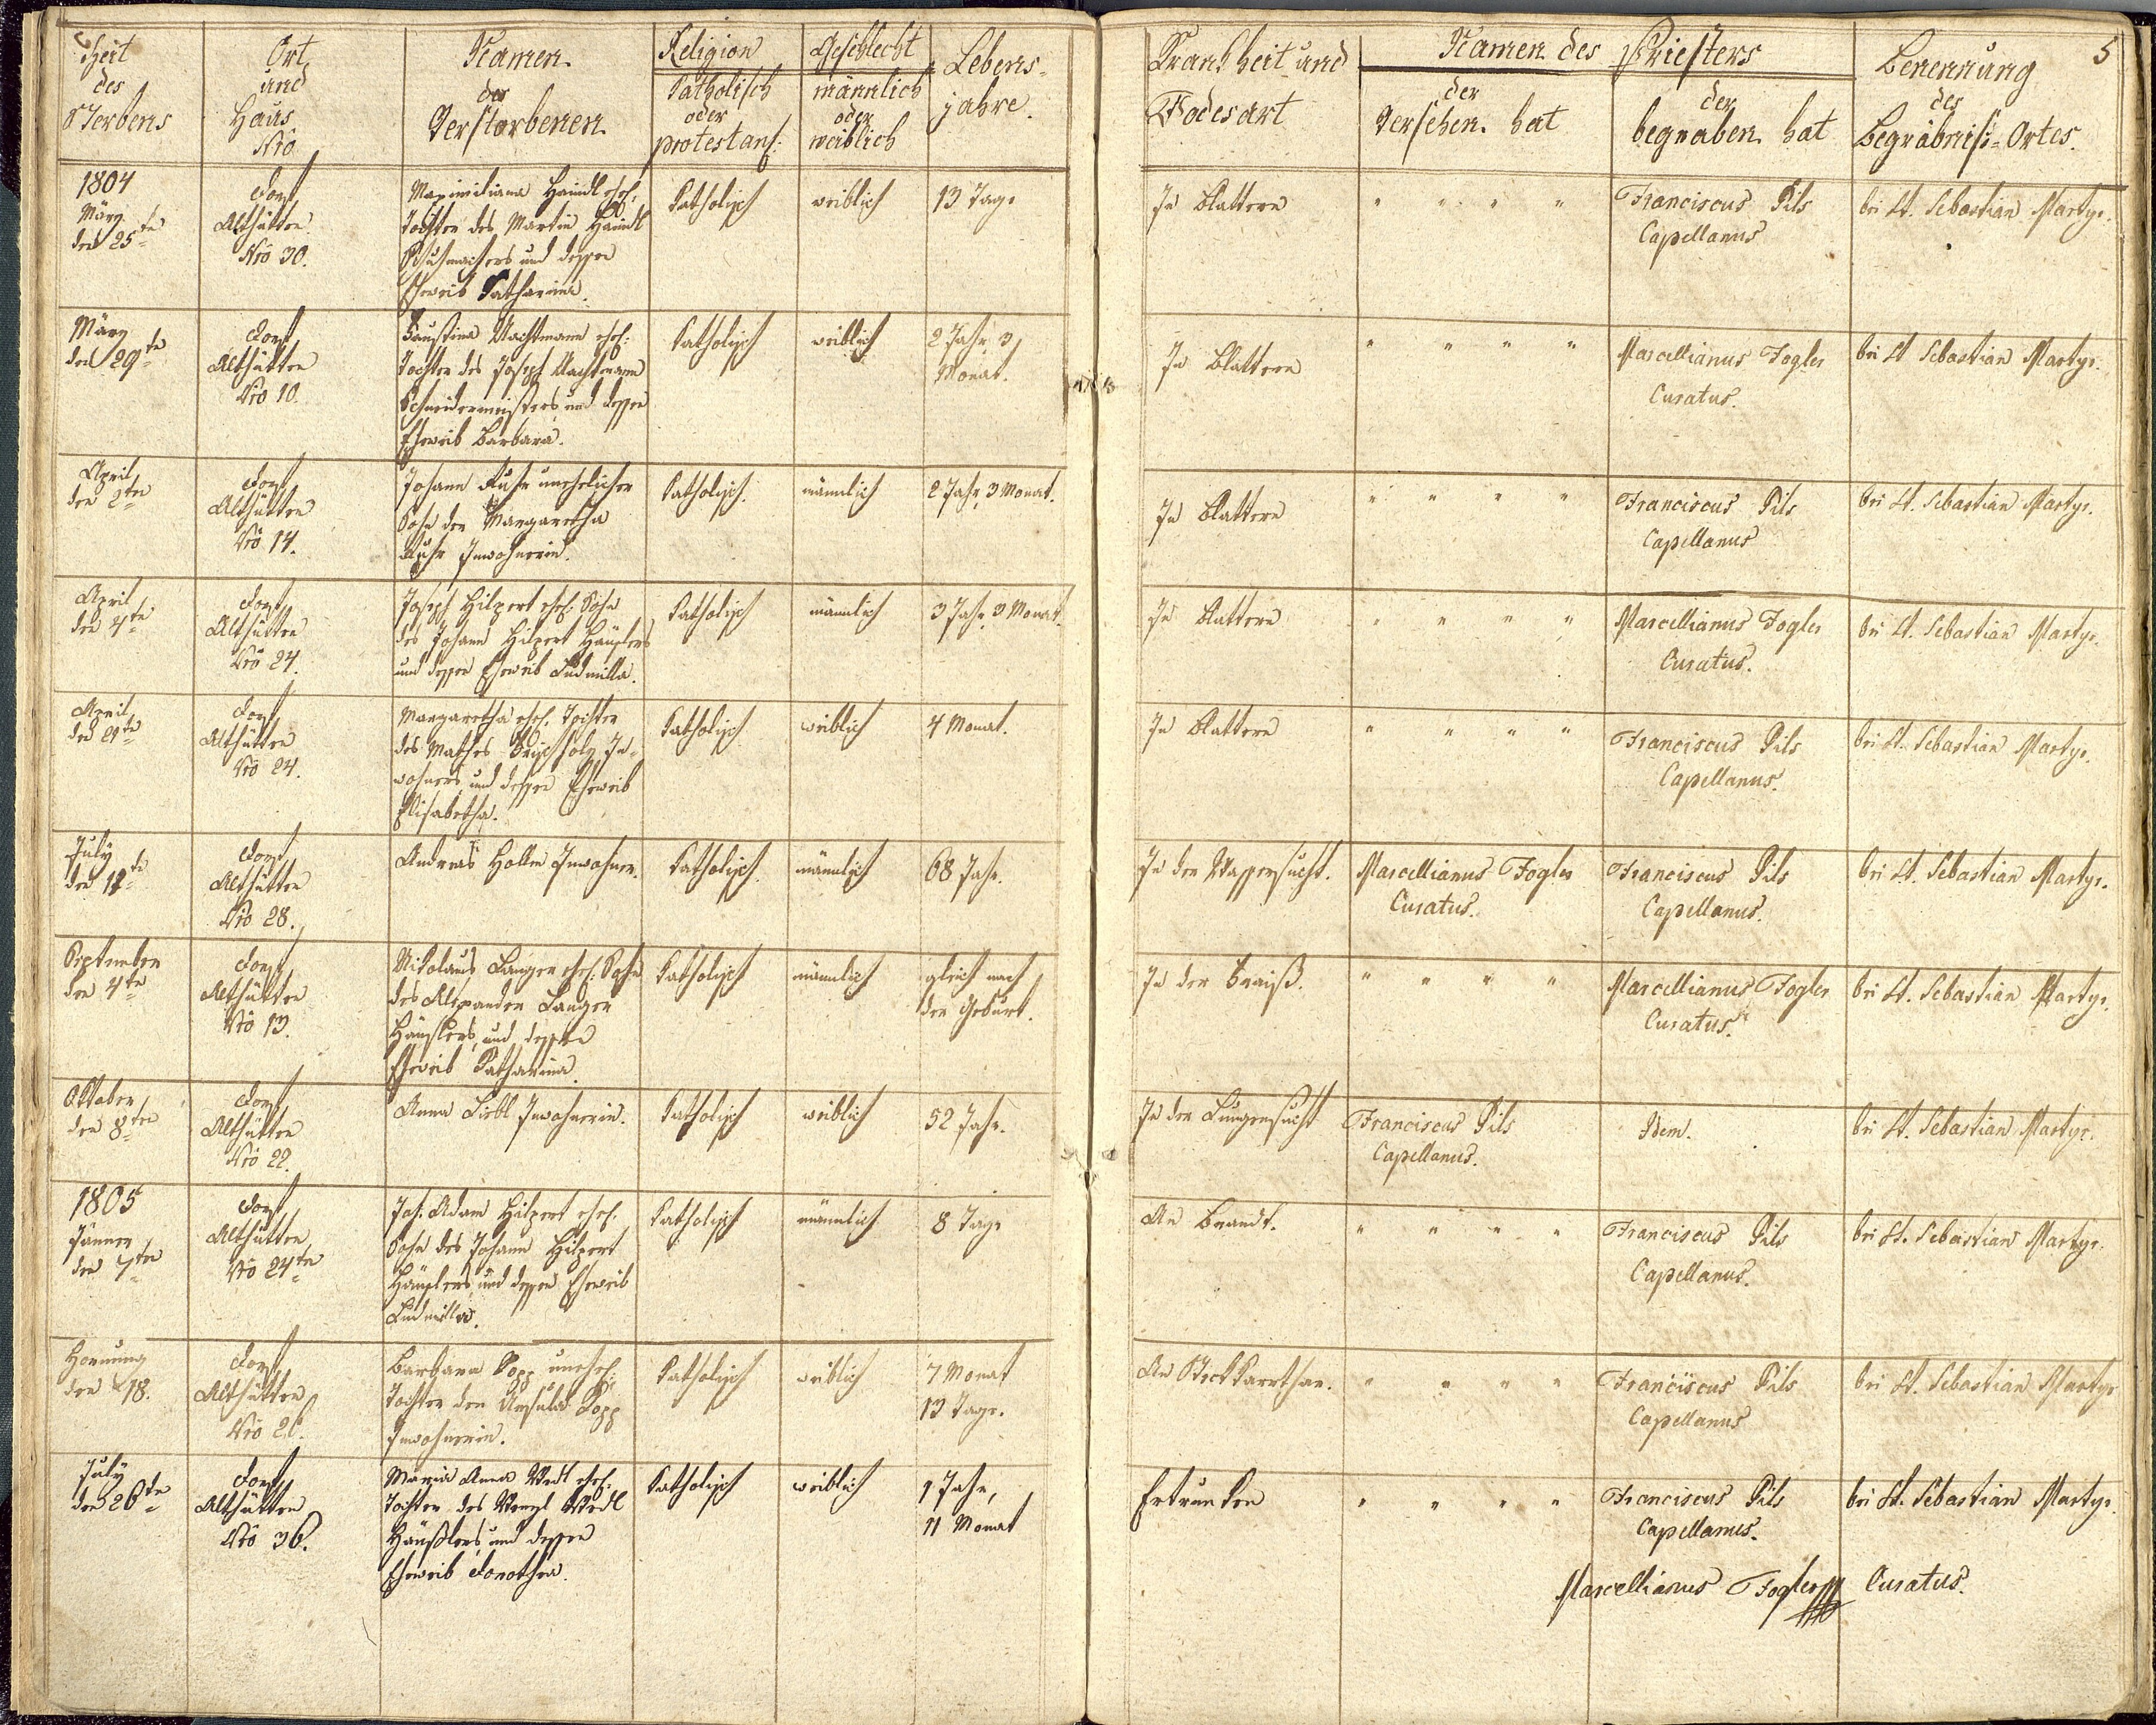 Zeit
des
Sterbens
Ort
und
Haus
Nro
Namen
der
Verstorbenen
Religion
Katholisch
oder
protestant:
Geschlecht
männlich
oder
weiblich
Lebens-
jahre.
Krankheit und
Todesart
Namen des Priesters
der
Versehen hat
der
begraben hat
Benennung
des
Begräbniß-Ortes.
5
1804
März
den 25te
Dorf
Althütten
Nro 30.
Maximiliana Haindl ehel.
Tochter des Martin Haindl
Schusmachers und dessen
Eheweib Katharina.
Katholisch
weiblich
13 Tage
In Blattern
" " " "
Franciscus Pils
Capellanus
bei St. Sebastian Martyr.
März
den 29te
Dorf
Althütten
Nro 10.
Faustina Nachtmann ehel:
Tochter des Joseph Nachtmann
Schneidermeisters und dessen
Eheweib Barbara.
Katholisch
weiblich
2 Jahr 3
Monat.
In Blattern
" " " "
Marcellianus Fogler
Curatus.
bei St Sebastian Martyr.
April
den 2ten
Dorf
Althütten
Nro 14.
Johann Fuhr unehelicher
Sohn der Margaretha
Fuhr Inwohnerin.
Katholisch.
männlich
2 Jahr 3 Monat.
In Blattern
" " " "
Franciscus Pils
Capellanus
bei St. Sebastian Martyr.
April
den 4te
Dorf
Althütten
Nro 24.
Joseph Hilgert ehel: Sohn
des Johann Hilgert Häuslers
und dessen Eheweib Ludmilla.
Katholisch
männlich
3 Jahr 3 Monat.
In Blattern
" " " "
Marcellianus Fogler
Curatus.
bei St. Sebastian Martyr.
April
den 21te
Dorf
Althütten
Nro 24.
Margaretha ehel. Tochter
des Mathes In-
wohners und dessen Eheweib
Elisabetha.
Katholisch
weiblich
4 Monat.
In Blattern
" " " "
Franciscus Pils
Capellanus.
bei St. Sebastian Martyr.
July
den 12te
Dorf
Althütten
Nro 28.
Andreas Holler Inwohner.
Katholisch
männlich
68 Jahr.
In der Wassersucht.
Marcellianus Fogler
Curatus.
Franciscus Pils
Capellanus.
bei St. Sebastian Martyr.
September
den 4te
Dorf
Althütten
Nro 13.
Nikolaus Langer ehel: Sohn
des Alexander Langer
Häuslers und dessen
Eheweib Katharina.
Katholisch
männlich
gleich nach
der Geburt.
In der Fraiß.
" " " "
Marcellianus Fogler
Curatus.
bei St. Sebastian Martyr.
Oktober
den 8ten
Dorf
Althütten
Nro 22.
Anna Liebl Inwohnerin.
Katholisch
weiblich
52 Jahr.
In der Lungensucht
Franciscus Pils
Capellanus.
Idem.
bei St. Sebastian Martyr.
1805
Jänner
den 7ten
Dorf
Althütten
Nro 24ten
Joh. Adam Hilgert ehel.
Sohn des Johann Hilgert
Häuslers und dessen Eheweib
Ludmilla.
Katholisch
männlich
8 Tage
An Brandt.
" " " "
Franciscus Pils
Capellanus.
bei St. Sebastian Martyr.
Hornung
den 18.
Dorf
Althütten
Nro 26.
Barbara Popp unehel:
Tochter der Ursula Popp
Inwohnerin.
Katholisch
weiblich
7 Monat
13 Tage.
An Steckkarthar.
" " " "
Franciscus Pils
Capellanus
bei St. Sebastian Martyr
July
den 26te
Dorf
Althütten
Nro 36.
Maria Anna Wedl ehel:
Tochter des Wenzl Wedl
Häußlers und dessen
Eheweib Dorothea.
Katholisch
weiblich
1 Jahr,
11 Monat
Ertrunken
" " " "
Franciscus Pils
Capellanus.
bei St. Sebastian Martyr.
Marcellianus Fogler Curatus.